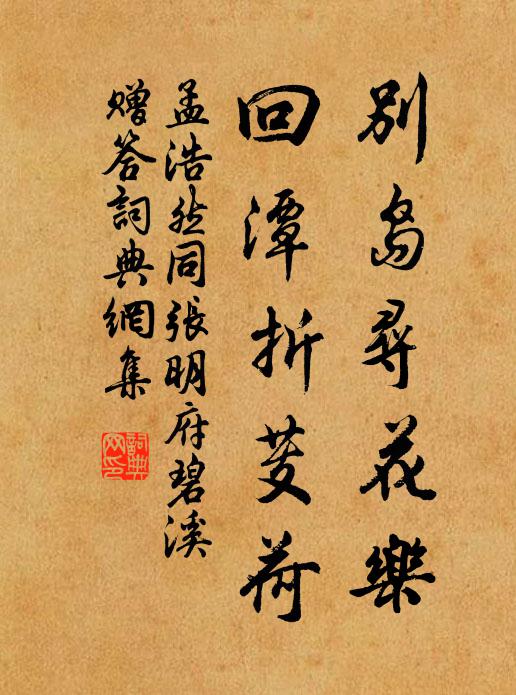 別島尋花樂
回潭折芰荷
孟浩然同張明府碧溪
贈答詞典網集
詞典
网印